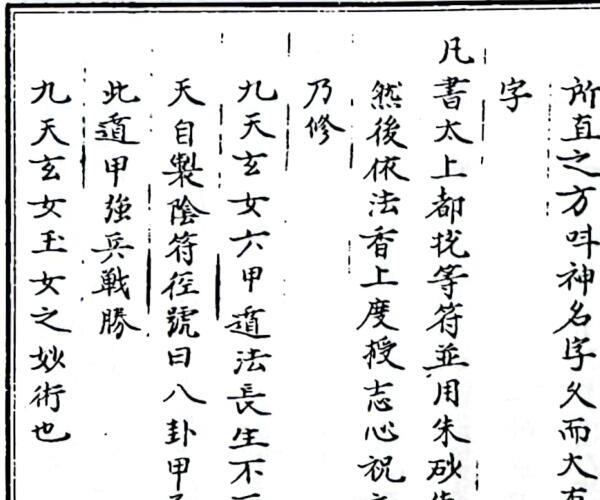 所直之方呌神名字久而大
字
凡書太上都等符並用朱砂
然後依法香上度授志心祝
乃修
九天玄女六甲遁法長生不
天自製陰符径號曰八卦甲
此遁甲強兵戦勝
九天玄女玉女之妙術也